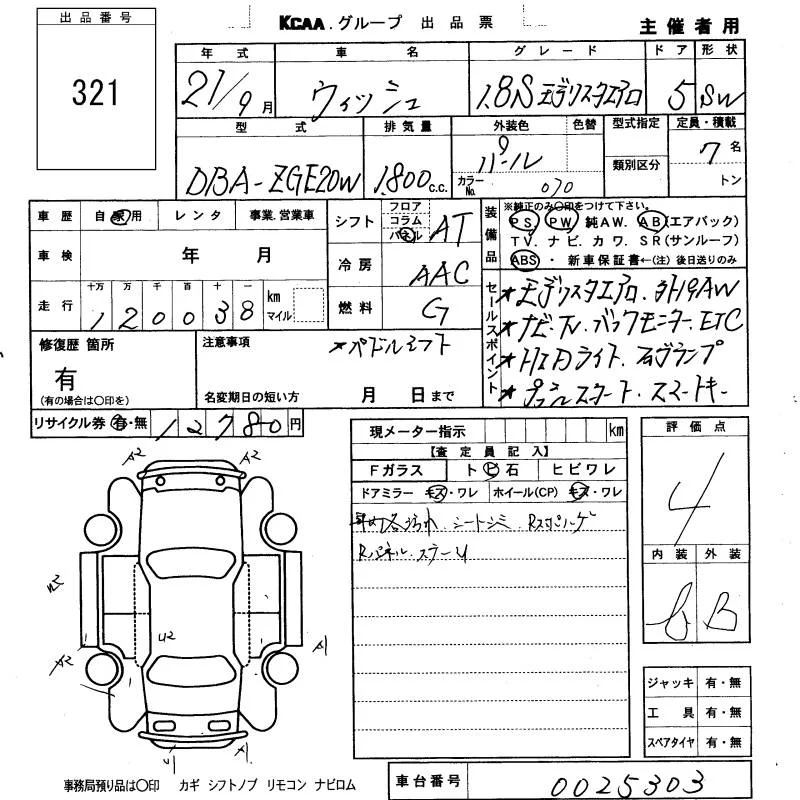 出品番号
321
KCAA.グループ 出品票
主催者用
年式 車名 グレード ドア 形状
21/9月 ウィッシュ 1.8S エアリスタエアロ 5 SW
型式 排気量 外装色 色替 型式指定 定員・積載
DBA-ZGE20W 1.800c.c. パール 7名
カラーNo. 070 類別区分 トン
車歴 自家用 レンタ 事業.営業車
シフト フロア コラム パネル AT
車検 年 月
冷房 AAC
走行 十万 万 千 百 十 一 km マイル
120038
燃料 G
装備品 ※純正のみ○印をつけて下さい。
PS PW 純AW. AB(エアバック)
TV. ナビ. カワ. SR(サンルーフ)
ABS・新車保証書←(注)後日送りのみ
セールスポイント
エアロ.
ナビ・TV.バックモニター.ETC
HIDライト.フォグランプ
プッシュスタート.スマートキー
修復歴 箇所
有
(有の場合は○印を)
注意事項
パドルシフト
名変期日の短い方 月 日まで
リサイクル券 有・無 12780円
現メーター指示 km
【査定員記入】
Fガラス ト ビ 石 ヒビワレ
ドアミラー キズ・ワレ ホイール(CP) キズ・ワレ
シートシミ.
Rパネル.
評価点
4
内装 外装
B
ジャッキ 有・無
工具 有・無
スペアタイヤ 有・無
A2
A2
A2
U2
A2
A1
A1
U1
事務局預り品は○印 カギ シフトノブ リモコン ナビロム
車台番号 0025303